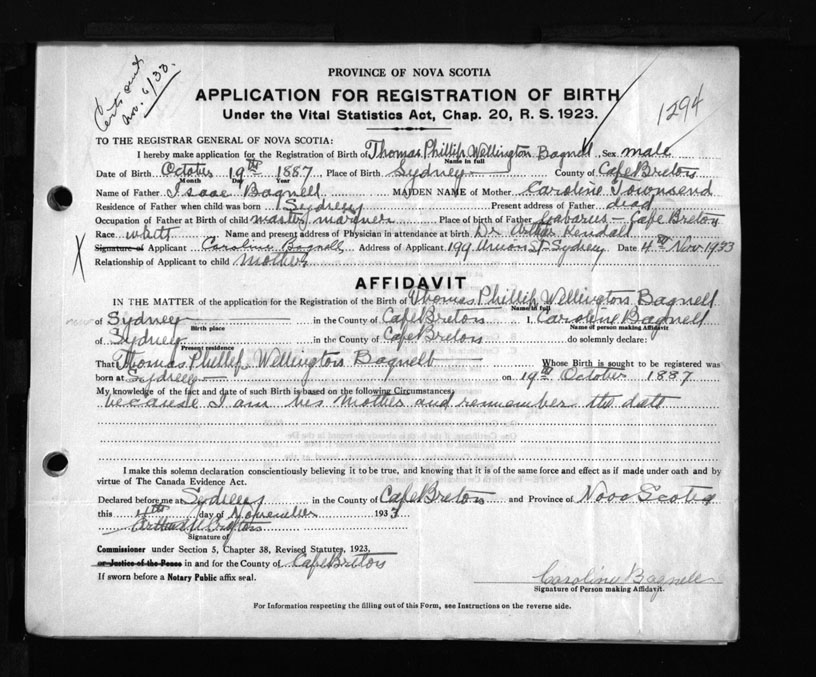 Cert sent
Nov. 6/33.
1294
PROVINCE OF NOVA SCOTIA
APPLICATION FOR REGISTRATION OF BIRTH
Under the Vital Statistics Act, Chap. 20, R. S. 1923.
TO THE REGISTRAR GENERAL OF NOVA SCOTIA:
I hereby make application for the Registration of Birth of Thomas Phillip Wellington Bagnell Sex male
Name in full
Date of Birth October 19th 1887 Place of Birth Sydney County of Cape Breton
Month Day Year
Name of Father Isaac Bagnell MAIDEN NAME of Mother Caroline Townsend
Residence of Father when child was born Sydney Present address of Father dead
Occupation of Father at Birth of child master mariner Place of birth of Father Gabarus - Cape Breton
Race white Name and present address of Physician in attendance at birth Dr Arthur Kendall
X Signature of Applicant Caroline Bagnell Address of Applicant 199 Union St Sydney Date 4th Nov 1933
Relationship of Applicant to child mother
AFFIDAVIT
IN THE MATTER of the application for the Registration of the Birth of Thomas Phillip Wellington Bagnell
Name in full
of Sydney in the County of Cape Breton I, Caroline Bagnell
Birth place Name of person making Affidavit
of Sydney in the County of Cape Breton do solemnly declare:
Present residence
That Thomas Phillip Wellington Bagnell Whose Birth is sought to be registered was
born at Sydney on 19th October 1887
My knowledge of the fact and date of such Birth is based on the following Circumstances
because I am his Mother and remember the date
I make this solemn declaration conscientiously believing it to be true, and knowing that it is of the same force and effect as if made under oath and by
virtue of The Canada Evidence Act.
Declared before me at Sydney in the County of Cape Breton and Province of Nova Scotia
this 4th day of November 1933
Arthur
Signature of
Commissioner under Section 5, Chapter 38, Revised Statutes, 1923,
or Justice of the Peace in and for the County of Cape Breton
If sworn before a Notary Public affix seal.
Caroline Bagnell
Signature of Person making Affidavit.
For Information respecting the filling out of this Form, see Instructions on the reverse side.